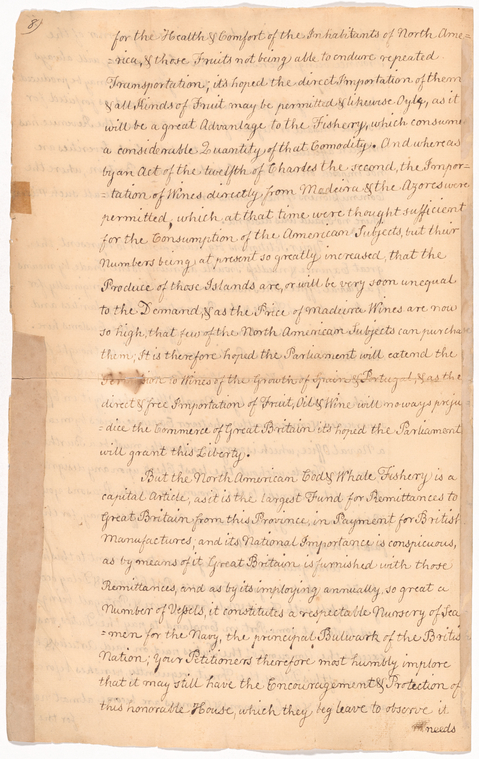 8)
for the Health & Comfort of the Inhabitants of North Ame=
=rica, & those Fruits not being able to endure repeated
Transportation; its hoped the direct Importation of them
& all Kinds of Fruit may be permitted & likewise Oyly, as it
will be a great Advantage to the Fishery, which consume
a considerable Quantity of that Comodity. And whereas
by an Act of the twelfth of Charles the second, the Impor=
=tation of Wines directly from Madeira & the Azores were
permitted, which, at that time were thought sufficient
for the Consumption of the American Subjects, but their
Numbers being at present so greatly increased, that the
Produce of those Islands are, or will be very soon unequal
to the Demand, & as the Price of Madeira Wines are now
so high, that few of the North American Subjects can purcha
them; It is therefore hoped the Parliament will extend the
to Wines of the Growth of Spain & Portugal, & as the
direct & free Importation of Fruit, Oil & Wine will no ways preju
=dice the Commerce of Great Britain its hoped the Parliament
will grant this Liberty.
But the North American Cod & Whale Fishery is a
capital Article, as it is the largest Fund for Remittances to
Great Britain from this Province, in Payment for British
Manufactures, and its National Importance is conspicuous,
as by means of it Great Britain is furnished with those
Remittances, and as by its imploying annually, so great a
Number of Vessels, it constitutes a respectable Nursery of Sea
=men for the Navy, the principal Bulwark of the Britis
Nation; Your Petitioners therefore most humbly implore
that it may still have the Encouragement & Protection of
this honorable House, which they beg leave to observe it
needs